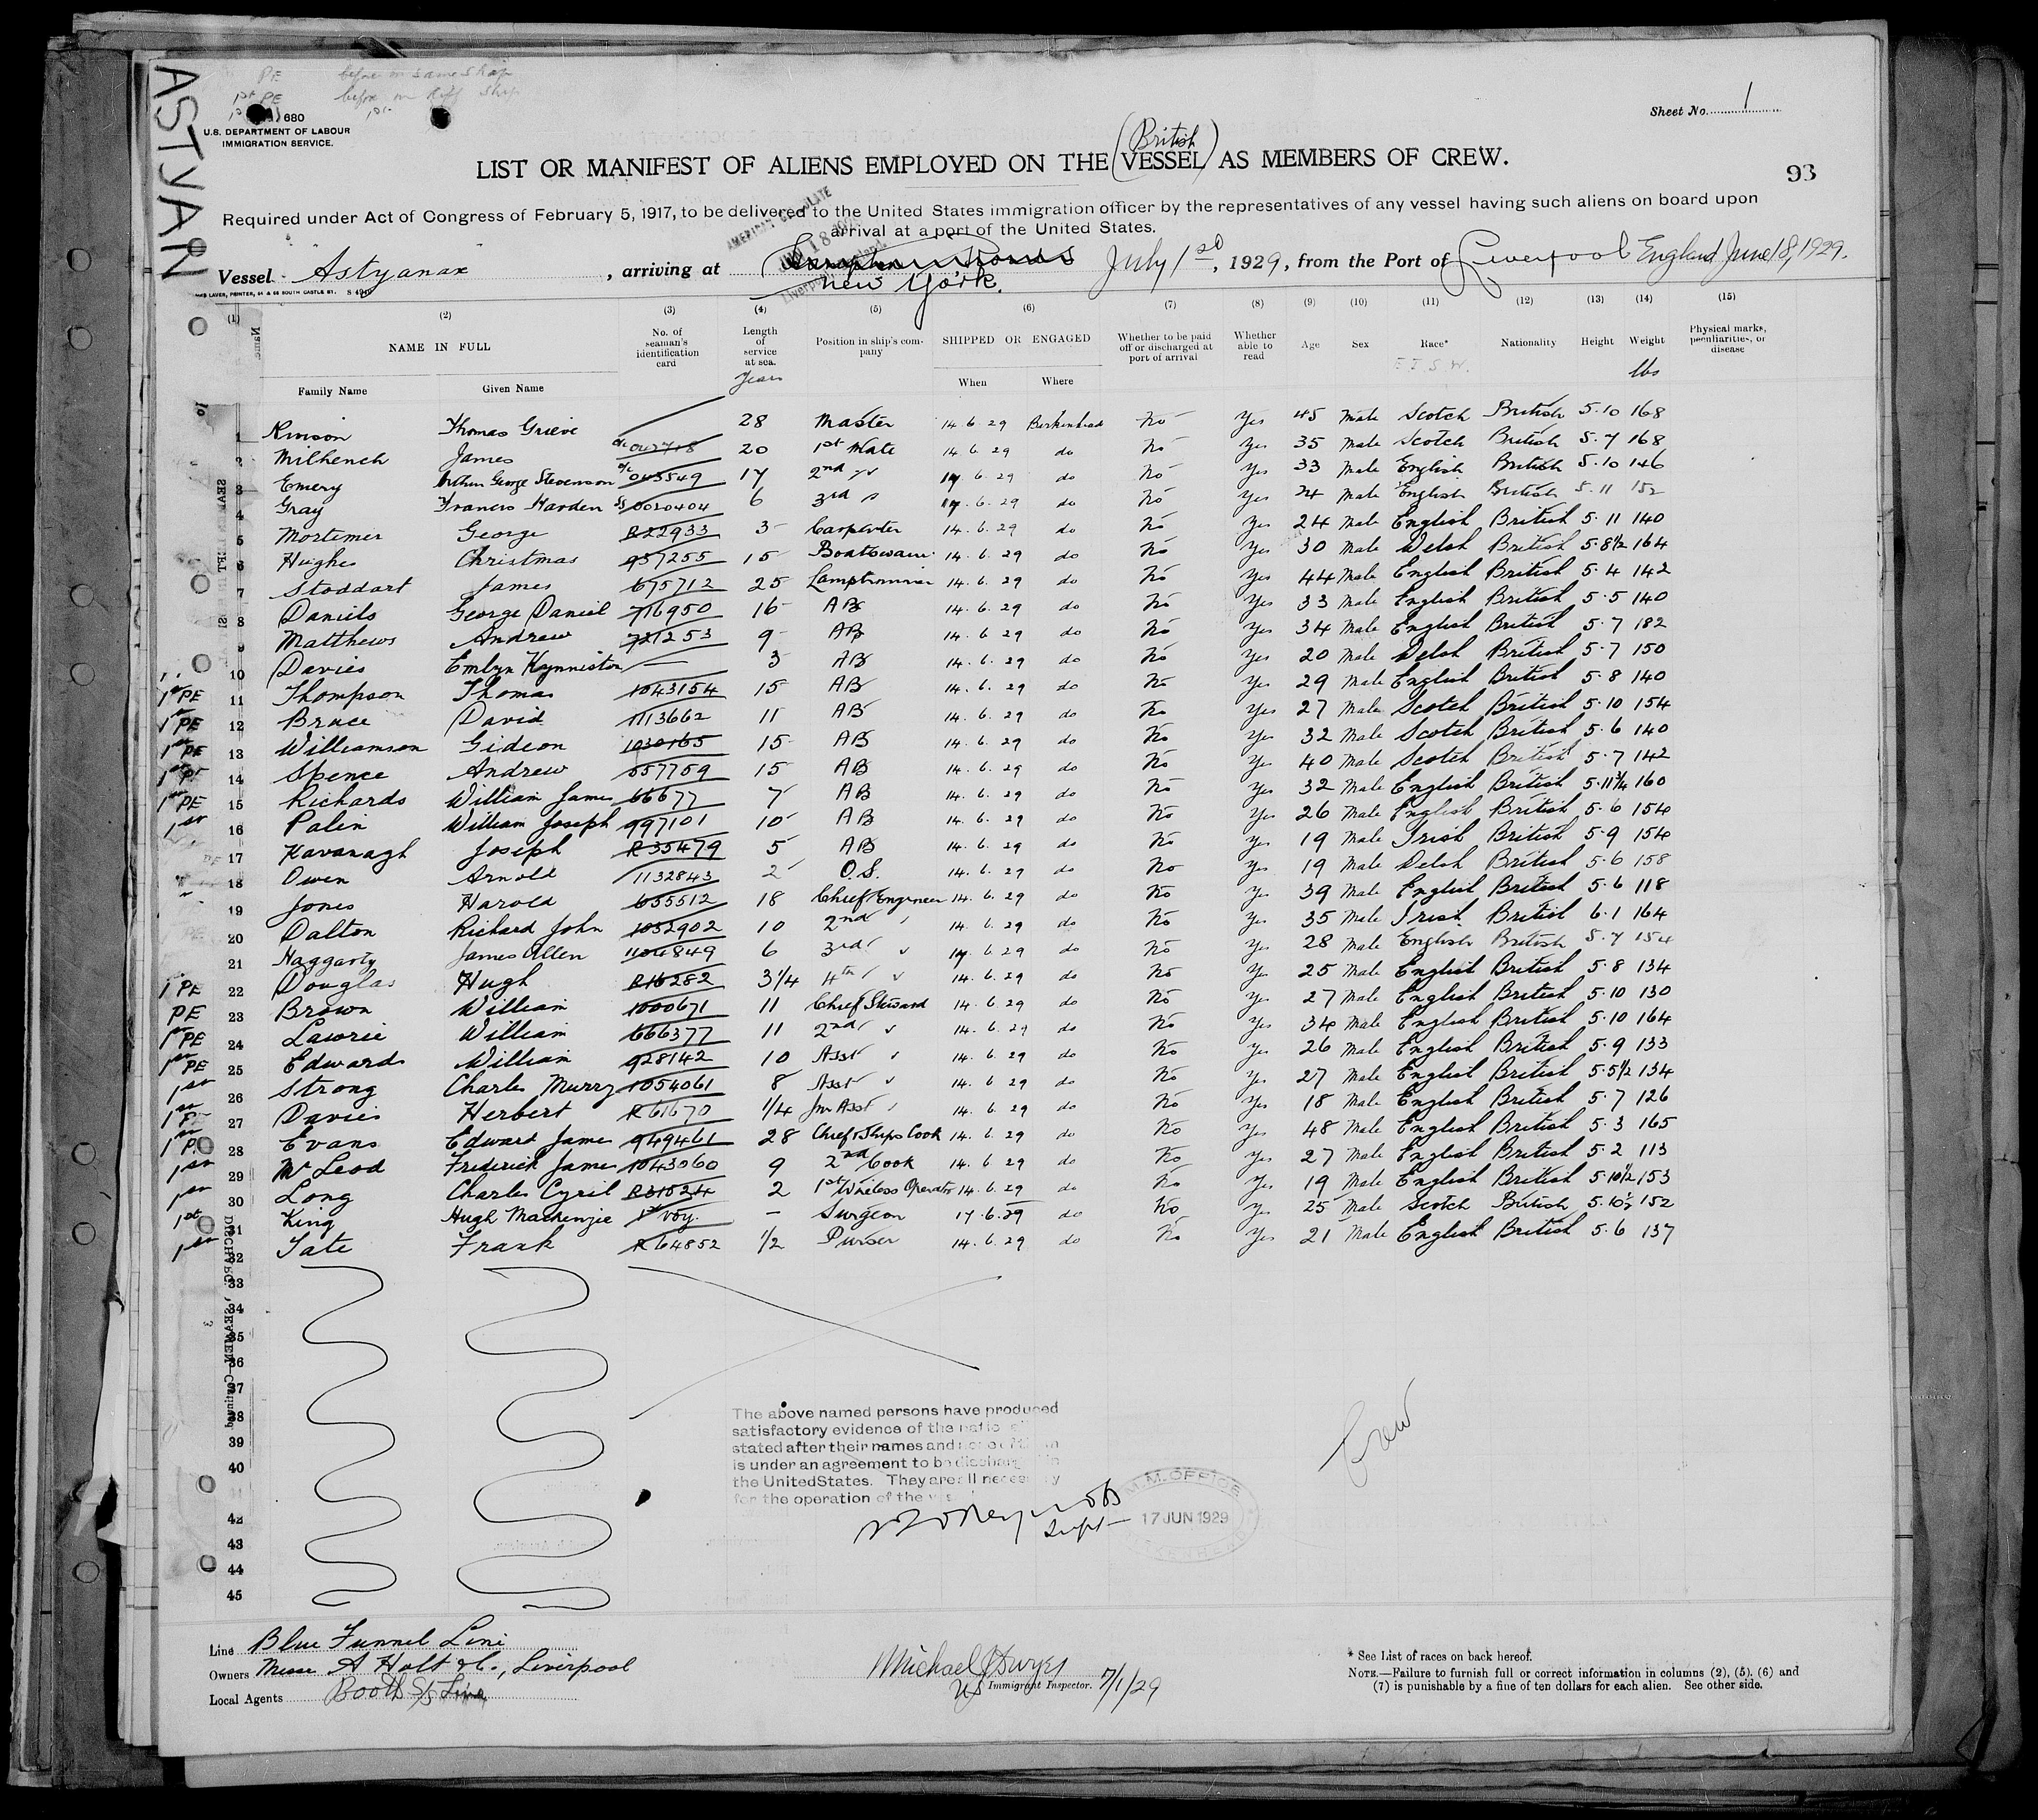 ASTYAN
PE before on same ship
1st PE before on diff ship
680
U.S. DEPARTMENT OF LABOUR
IMMIGRATION SERVICE.
Sheet No. 1
93
(British)
LIST OR MANIFEST OF ALIENS EMPLOYED ON THE VESSEL AS MEMBERS OF CREW.
Required under Act of Congress of February 5, 1917, to be delivered to the United States immigration officer by the representatives of any vessel having such aliens on board upon
arrival at a port of the United States.
Vessel Astyanax, arriving at New York. July 1st, 1929, from the Port of Liverpool England June 18, 1929.
(1) (2) (3) (4) (5) (6) (7) (8) (9) (10) (11) (12) (13) (14) (15)
NAME IN FULL
Family Name Given Name
No. of seaman's identification card
Length of service at sea. Years
Position in ship's company
SHIPPED OR ENGAGED
When Where
Whether to be paid off or discharged at port of arrival
Whether able to read
Age Sex Race* Nationality Height Weight lbs
Physical marks, peculiarities, or disease
1 Thomas Grieve 28 Master 14 6 29 Birkenhead No Yes 45 Male Scotch British 5.10 168
2 Milhench James 20 1st Mate 14 6 29 do No Yes 35 Male Scotch British 5.7 168
3 Emery Arthur George Stevenson 043549 17 2nd 14 6 29 do No Yes 33 Male English British 5.10 146
4 Gray Francis Harden 0020404 6 3rd 14.6.29 do No Yes 24 Male English British 5.11 152
5 Mortimer George R22933 3 Carpenter 14.6.29 do No Yes 24 Male English British 5.11 140
6 Hughes Christmas 957255 15 Boatswain 14.6.29 do No Yes 30 Male Welsh British 5.8½ 164
7 Stoddart James 675712 25 Lamptrimmer 14.6.29 do No Yes 44 Male English British 5.4 142
8 Daniels George Daniel 716950 16 AB 14.6.29 do No Yes 33 Male English British 5.5 140
9 Matthews Andrew 721253 9 AB 14.6.29 do No Yes 34 Male English British 5.7 182
10 Davies Emlyn Kynniston — 3 AB 14.6.29 do No Yes 20 Male Welsh British 5.7 150
1st PE 11 Thompson Thomas 1043154 15 AB 14.6.29 do No Yes 29 Male English British 5.8 140
1st PE 12 Bruce David 1113662 11 AB 14.6.29 do No Yes 27 Male Scotch British 5.10 154
1st PE 13 Williamson Gideon 1030165 15 AB 14.6.29 do No Yes 32 Male Scotch British 5.6 140
14 Spence Andrew 557759 15 AB 14.6.29 do No Yes 40 Male Scotch British 5.7 142
1st PE 15 Richards William James 66677 7 AB 14.6.29 do No Yes 32 Male English British 5.11¾ 160
1st 16 Palin William Joseph 997101 10 AB 14.6.29 do No Yes 26 Male English British 5.6 154
17 Kavanagh Joseph R35479 5 AB 14.6.29 do No Yes 19 Male Irish British 5.9 154
18 Owen Arnold 1132843 2 O.S. 14.6.29 do No Yes 19 Male Welsh British 5.6 158
19 Jones Harold 635512 18 Chief Engineer 14.6.29 do No Yes 39 Male English British 5.6 118
20 Dalton Richard John 1032902 10 2nd 14.6.29 do No Yes 35 Male Irish British 6.1 164
21 Haggarty James Allen 1104849 6 3rd 14.6.29 do No Yes 28 Male English British 5.7 154
1 PE 22 Douglas Hugh R16282 3¼ 4th 14.6.29 do No Yes 25 Male English British 5.8 134
PE 23 Brown William 1000671 11 Chief Steward 14.6.29 do No Yes 27 Male English British 5.10 130
1st PE 24 Lawrie William 666377 11 2nd 14.6.29 do No Yes 34 Male English British 5.10 164
1st PE 25 Edwards William 928142 10 Asst 14.6.29 do No Yes 26 Male English British 5.9 133
1st 26 Strong Charles Murry 1054061 8 Asst 14.6.29 do No Yes 27 Male English British 5.5½ 134
27 Davies Herbert R61670 ¼ Jnr Asst 14.6.29 do No Yes 18 Male English British 5.7 126
28 Evans Edward James 949461 28 Chief & Ships Cook 14.6.29 do No Yes 48 Male English British 5.3 165
1st 29 McLeod Frederick James 1043060 9 2nd Cook 14.6.29 do No Yes 27 Male English British 5.2 113
1st 30 Long Charles Cyril R31524 2 1st Wireless Operator 14.6.29 do No Yes 19 Male English British 5.10½ 153
1st 31 King Hugh Mackenzie 1st voy. — Surgeon 17.6.29 do No Yes 25 Male Scotch British 5.10½ 152
1st 32 Tate Frank R64852 ½ Purser 14.6.29 do No Yes 21 Male English British 5.6 137
33
34
35
36
37
38
39
40
42
43
44
45
The above named persons have produced
satisfactory evidence of the
stated after their names and
is under an agreement to be
the United States. They are all necessary
for the operation of the
Supt
M.M. OFFICE
17 JUN 1929
Crew
Line Blue Funnel Line
Owners Messrs A Holt & Co., Liverpool
Local Agents Booth S/S Line
Michael J Dwyer
US Immigrant Inspector. 7/1/29
* See List of races on back hereof.
NOTE.—Failure to furnish full or correct information in columns (2), (5), (6) and
(7) is punishable by a fine of ten dollars for each alien. See other side.